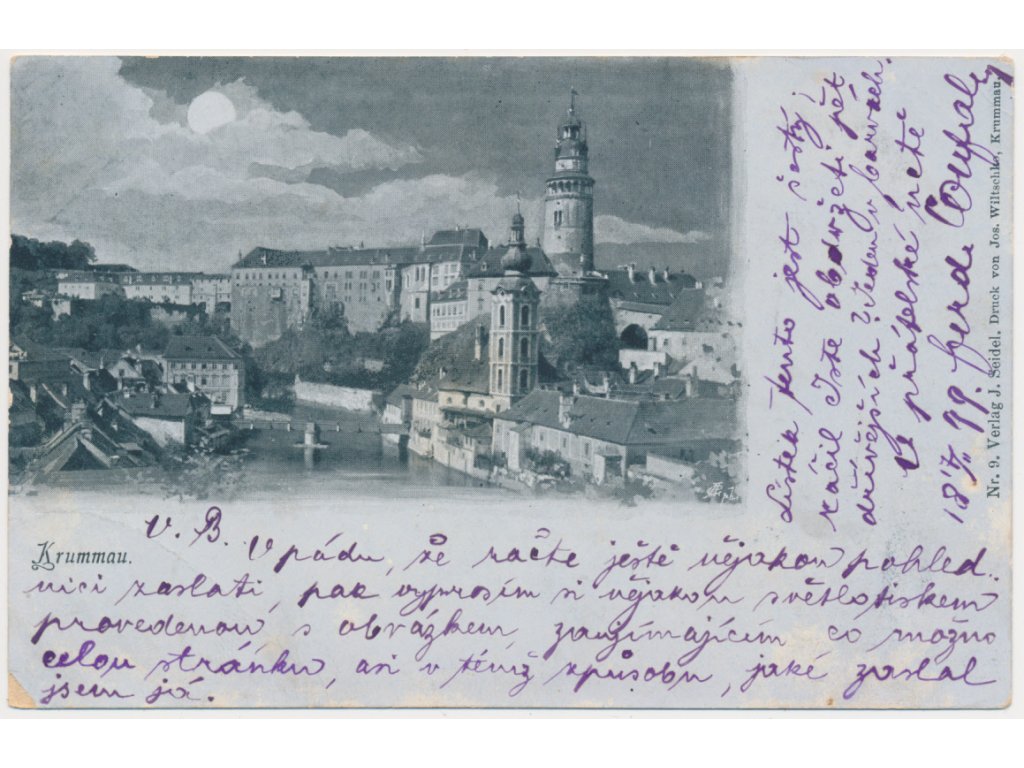 Krummau.
V. B.
V pádu, že račte ještě nějakou pohled-
nici zaslati, pak vyprosím si nějakou světlotiskem
provedenou s obrázkem, zaujímajícím co možno
celou stránku, asi v témž způsobu, jaké zaslal
jsem já.
Lístek tento jest šestý;
ráčil Jste obdržeti pět
dřívějších? Jeden v barvách.
V přátelské úctě
18 99. Gerda
Nr. 9. Verlag J. Seidel. Druck von Jos. Wiltschko, Krummau.